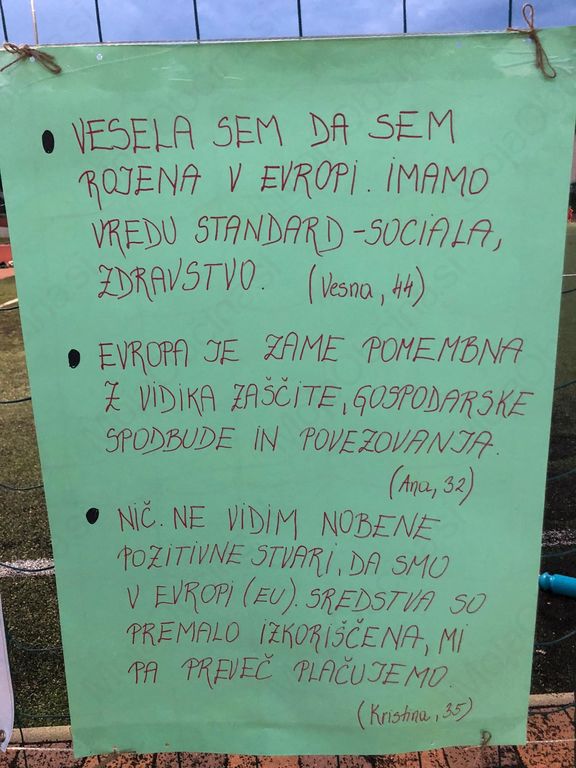 • VESELA SEM DA SEM
ROJENA V EVROPI. IMAMO
VREDU STANDARD - SOCIALA,
ZDRAVSTVO. (Vesna, 44)
• EVROPA JE ZAME POMEMBNA
Z VIDIKA ZAŠČITE, GOSPODARSKE
SPODBUDE IN POVEZOVANJA.
(Ana, 32)
• NIČ. NE VIDIM NOBENE
POZITIVNE STVARI, DA SMO
V EVROPI (EU). SREDSTVA SO
PREMALO IZKORIŠČENA, MI
PA PREVEČ PLAČUJEMO.
(Kristina, 35)